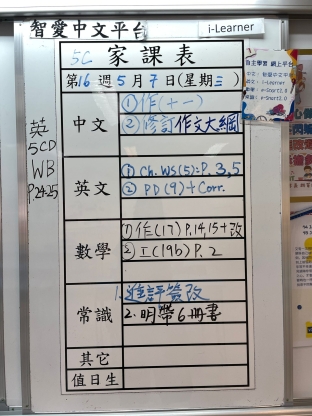 智愛中文平台
i-Learner
5C 家課表
第16週5月7日(星期三)
自主學習 網上平台
中文：智愛中文平台
英文：i-Learner
中文
①作(十一)
②修訂作文大綱
英
5CD
WB
P.24-25
英文
① Ch. WS(5): P. 3,5
② PD(9) + Corr.
數學
①作(17) P.14,15+改
②工(19b) P.2
常識
1.進評簽改
2.明帶6冊書
其它
值日生